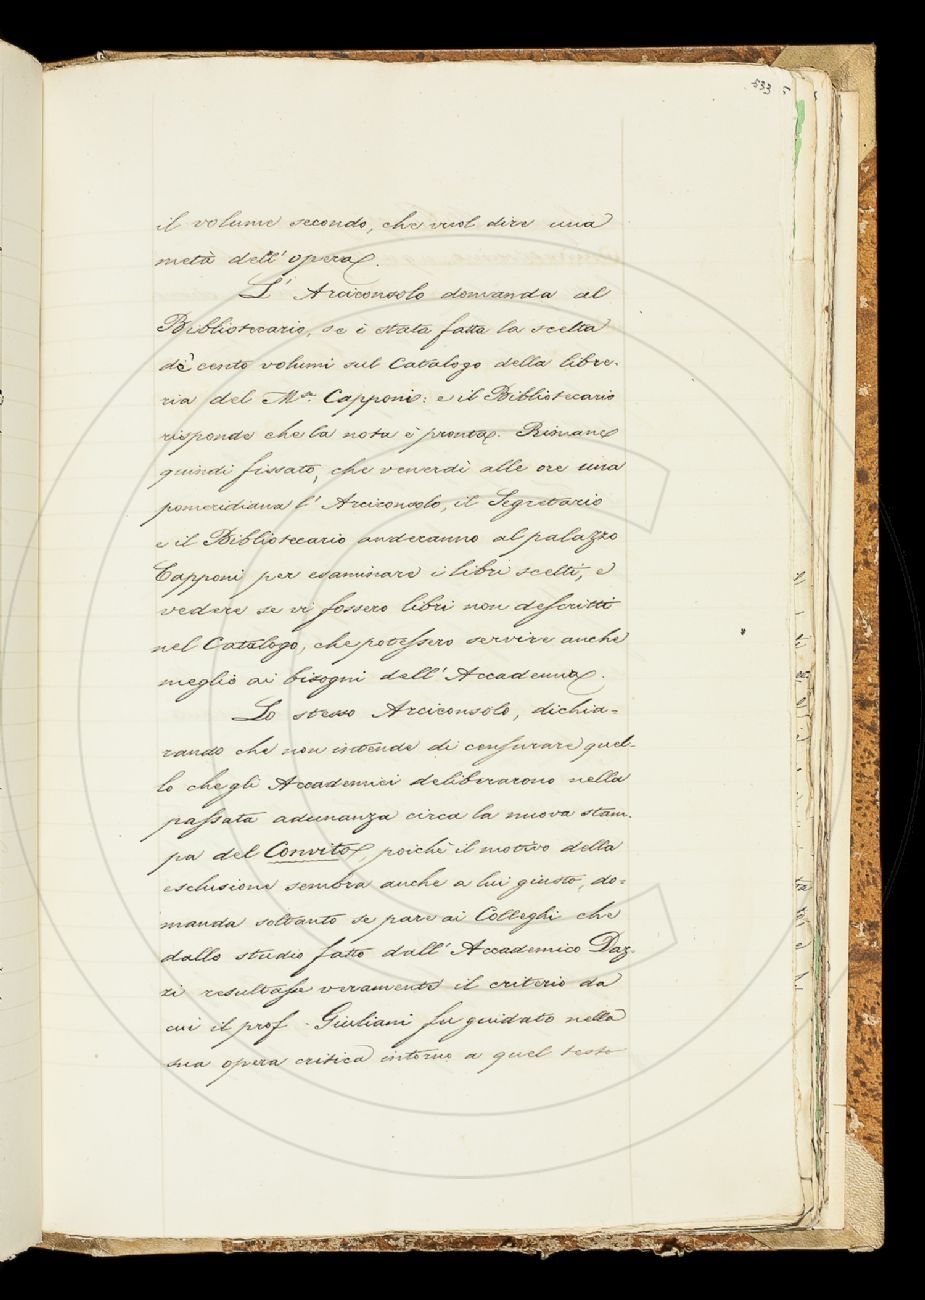 533
il volume secondo, che vuol dire una
metà dell' opera.
L' Arciconsolo domanda al
Bibliotecario, se è stata fatta la scelta
de' cento volumi sul Catalogo della libre-
ria del M.se Capponi: e il Bibliotecario
risponde che la nota è pronta. Rimane
quindi fissato, che venerdì alle ore una
pomeridiana l' Arciconsolo, il Segretario
e il Bibliotecario anderanno al palazzo
Capponi per esaminare i libri scelti, e
vedere se vi fossero libri non descritti
nel Catalogo, che potessero servire anche
meglio ai bisogni dell' Accademia.
Lo stesso Arciconsolo, dichia-
rando che non intende di censurare quel-
lo che gli Accademici deliberarono nella
passata adunanza circa la nuova stam-
pa del Convito, poichè il motivo della
esclusione sembra anche a lui giusto, do-
manda soltanto se pare ai Colleghi che
dallo studio fatto dall' Accademico Daz-
zi resultasse veramente il criterio da
cui il prof. Giuliani fu guidato nella
sua opera critica intorno a quel testo